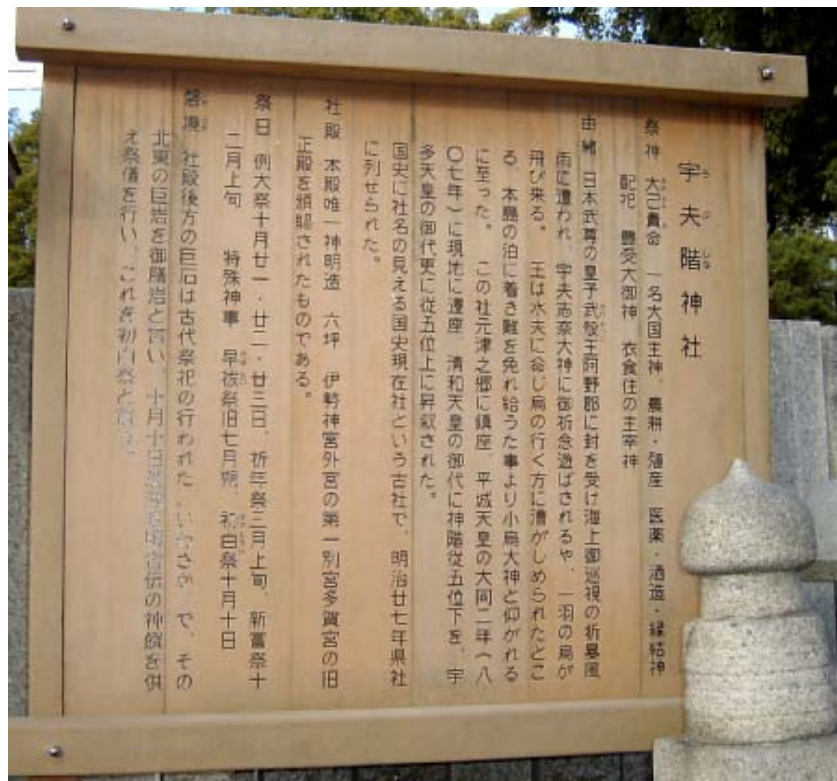 宇夫階神社
祭神 大己貴命 一名大国主神、農耕・殖産 医薬・酒造・縁結神
配祀 豊受大御神 衣食住の主宰神
由緒 日本武尊の皇子武殻王阿野郡に封を受け海上御巡視の折暴風
雨に遭われ、宇夫志奈大神に御祈念遊ばされるや、一羽の烏が
飛び来る。 王は水夫に命じ烏の行く方に漕がしめられたとこ
る、本島の泊に着き難を免れ給うた事より小烏大神と仰がれる
に至った。 この社元津之郷に鎮座、平城天皇の大同二年(八
〇七年)に現地に遷座 清和天皇の御代に神階従五位下を、宇
多天皇の御代更に従五位上に昇叙された。
国史に社名の見える国史現在社という古社で、明治廿七年県社
に列せられた。
社殿 本殿唯一神明造 六坪 伊勢神宮外宮の第一別宮多賀宮の旧
正殿を頒賜されたものである。
祭日 例大祭十月廿一・廿二・廿三日、祈年祭三月上旬、新嘗祭十
二月上旬 特殊神事 早祓祭旧七月朔 初白祭十月十日
磐境 社殿後方の巨石は古代祭祀の行われた で、その
北東の巨岩を御膳岩と言い、十月十日 の神饌を供
え祭儀を行い、これを初白祭と言う。